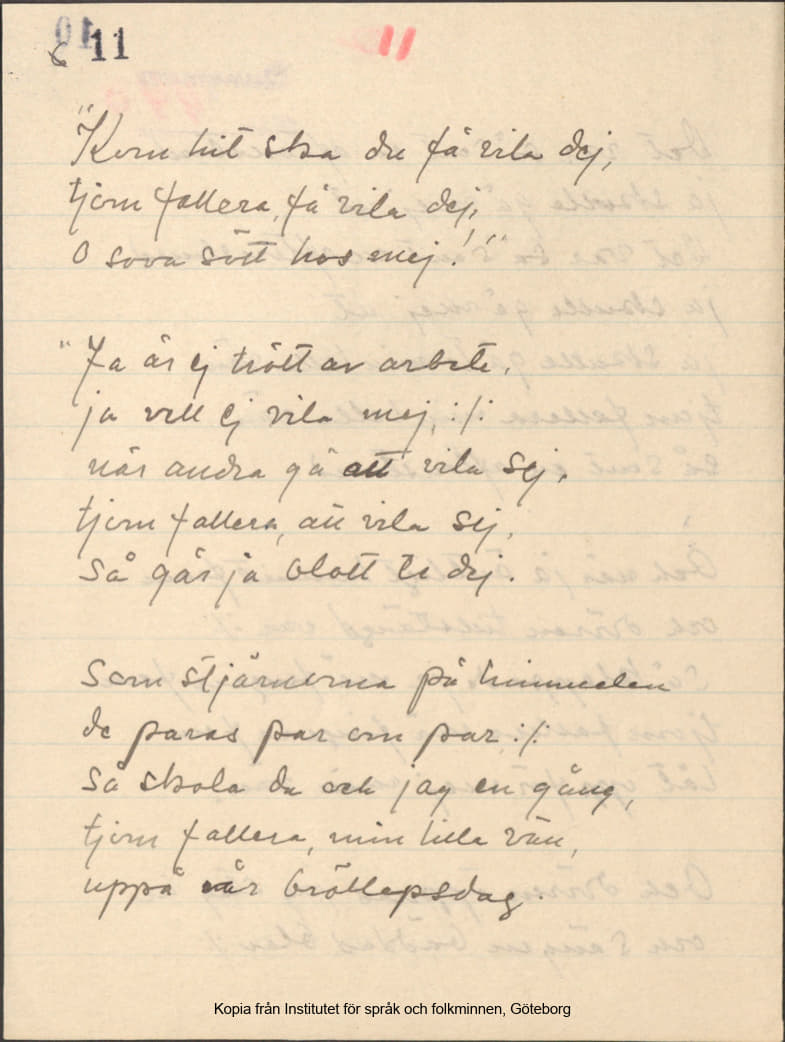 11
11
"Kom hit ska du få vila dej,
tjom fallera, få vila dej,
o sova sött hos mej!"
"Ja är ej trött av arbete,
ja vell ej vila mej, :/:
när andra gå att vila sej,
tjom fallera, att vila sej,
så går ja blott te dej.
Som stjärnorna på himmelen
de paras par om par, :/:
så skola du och jag en gång,
tjom fallera, min lilla vän,
uppå vår bröllopsdag.
Kopia från Institutet för språk och folkminnen, Göteborg